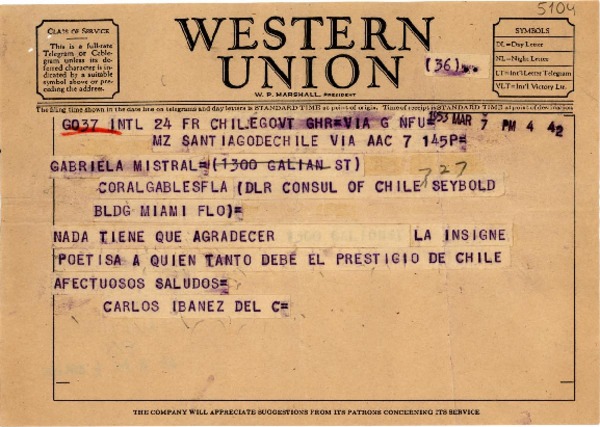 5104
CLASS OF SERVICE
This is a full-rate
Telegram or Cable-
gram unless its de-
ferred character is in-
dicated by a suitable
symbol above or pre-
ceding the address.
WESTERN
UNION
W. P. MARSHALL, PRESIDENT
(36)
SYMBOLS
DL=Day Letter
NL=Night Letter
LT=Int'l Letter Telegram
VLT=Int'l Victory Ltr.
The filing time shown in the date line on telegrams and day letters is STANDARD TIME at point of origin. Time of receipt is STANDARD TIME at point of destination
GO37 INTL 24 FR CHILEGOVT GHR=VIA G NFU=
1953 MAR 7 PM 4 42
MZ SANTIAGODECHILE VIA AAC 7 145P=
GABRIELA MISTRAL=(1300 GALIAN ST)
727
CORALGABLESFLA (DLR CONSUL OF CHILE SEYBOLD
BLDG MIAMI FLO)=
NADA TIENE QUE AGRADECER LA INSIGNE
POETISA A QUIEN TANTO DEBE EL PRESTIGIO DE CHILE
AFECTUOSOS SALUDOS=
CARLOS IBANEZ DEL C=
THE COMPANY WILL APPRECIATE SUGGESTIONS FROM ITS PATRONS CONCERNING ITS SERVICE